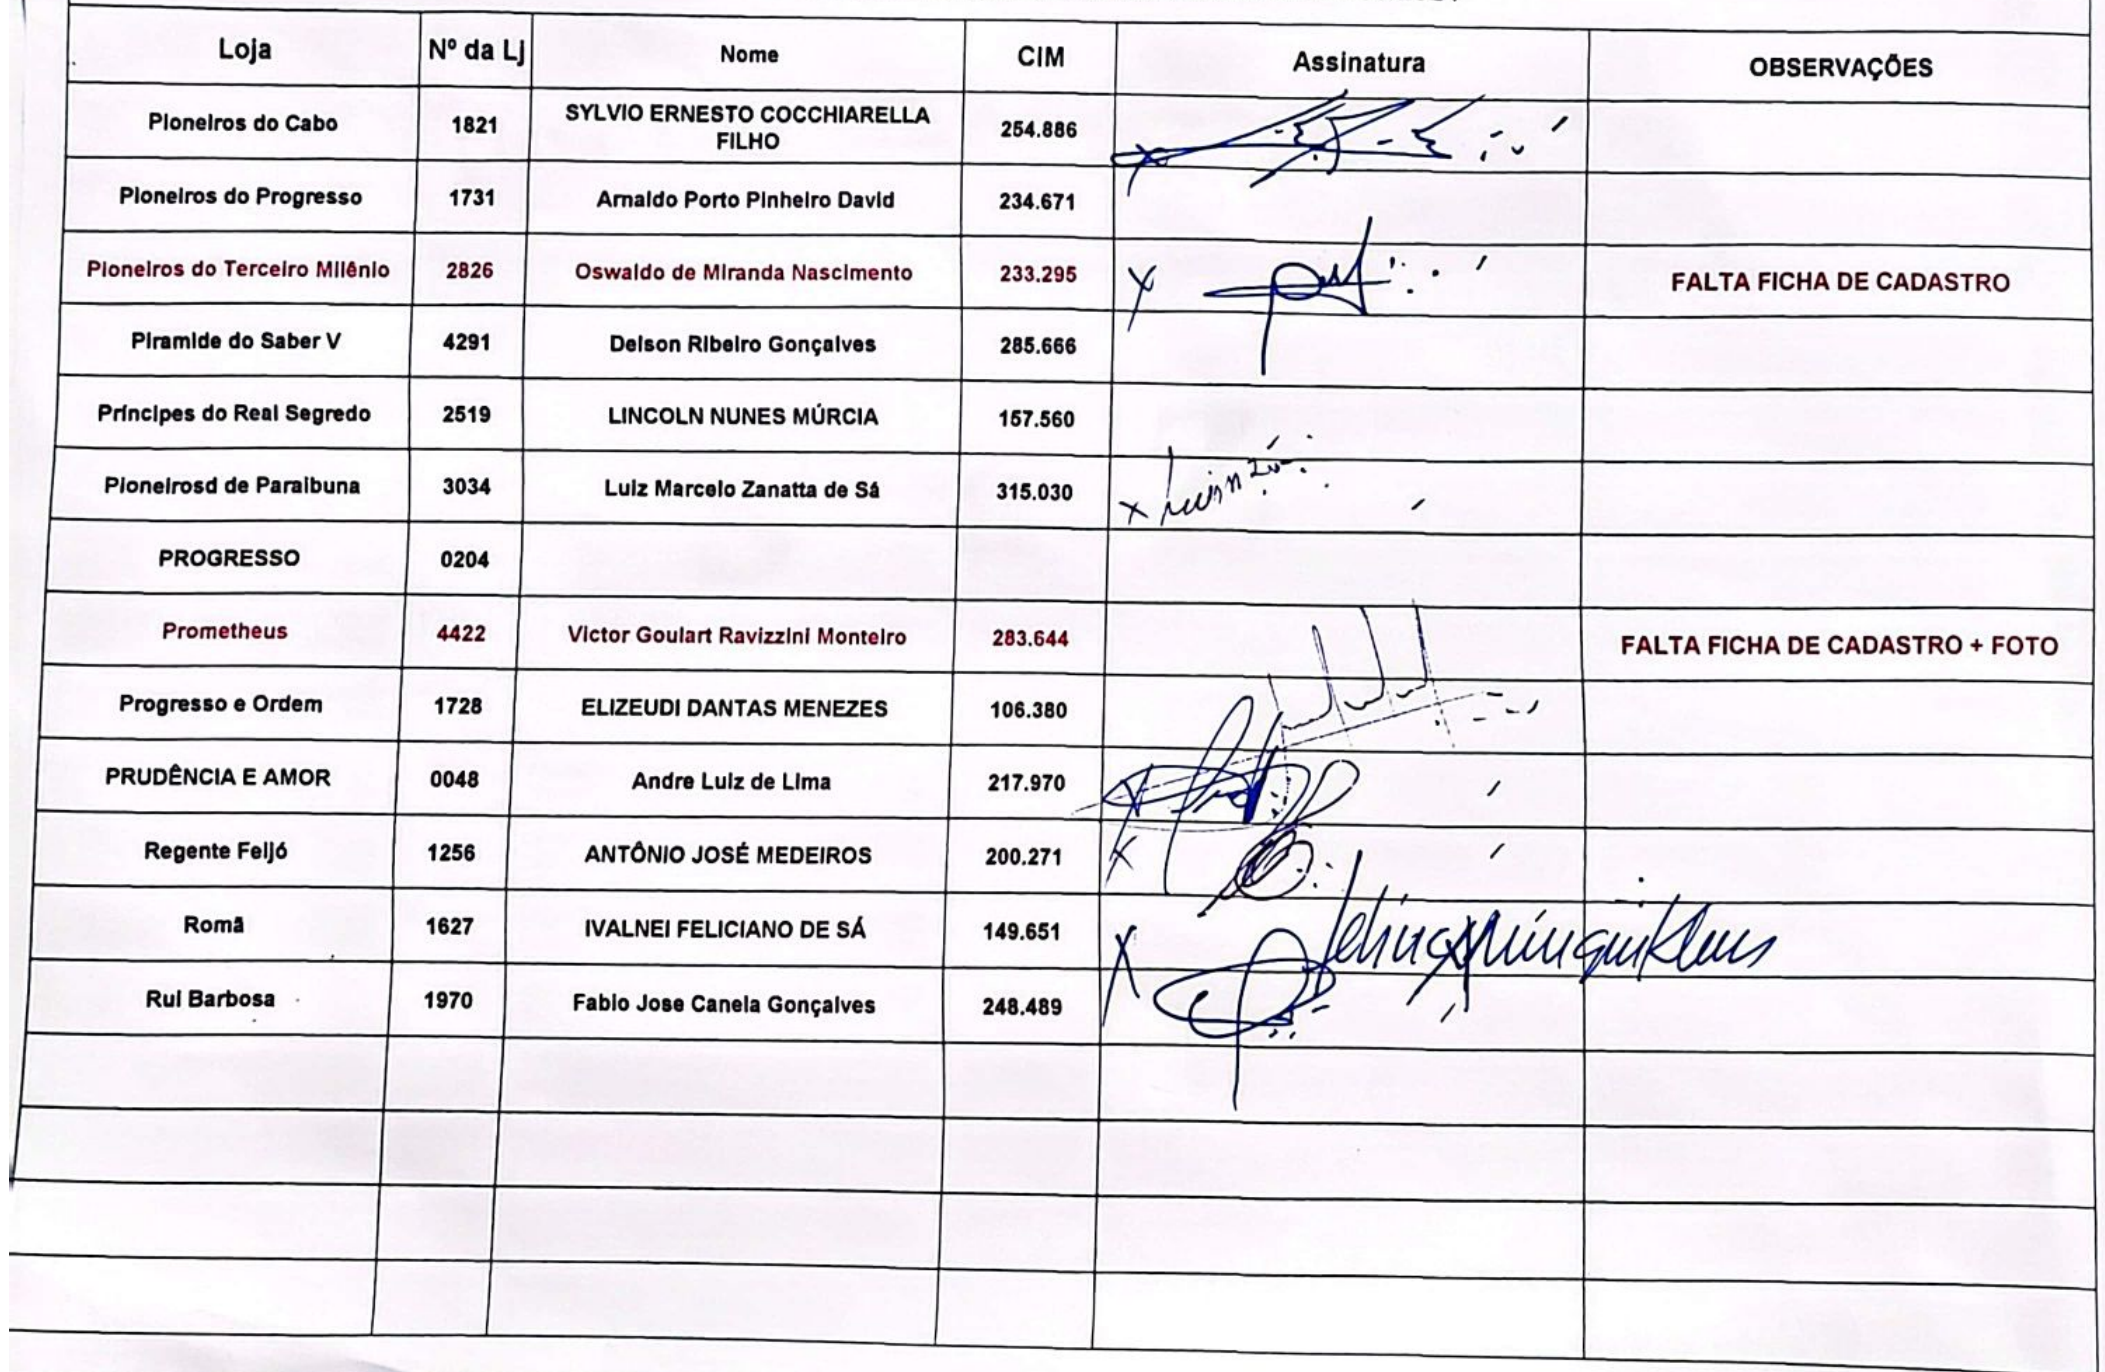 Loja Nº da Lj Nome CIM Assinatura OBSERVAÇÕES
Pioneiros do Cabo 1821 SYLVIO ERNESTO COCCHIARELLA FILHO 254.886
Pioneiros do Progresso 1731 Arnaldo Porto Pinheiro David 234.671
Pioneiros do Terceiro Milênio 2826 Oswaldo de Miranda Nascimento 233.295 X FALTA FICHA DE CADASTRO
Piramide do Saber V 4291 Delson Ribeiro Gonçalves 285.666
Príncipes do Real Segredo 2519 LINCOLN NUNES MÚRCIA 157.560
Pioneirosd de Paraibuna 3034 Luiz Marcelo Zanatta de Sá 315.030 x
PROGRESSO 0204
Prometheus 4422 Victor Goulart Ravizzini Monteiro 283.644 FALTA FICHA DE CADASTRO + FOTO
Progresso e Ordem 1728 ELIZEUDI DANTAS MENEZES 106.380
PRUDÊNCIA E AMOR 0048 Andre Luiz de Lima 217.970 X
Regente Feijó 1256 ANTÔNIO JOSÉ MEDEIROS 200.271 X
Romã 1627 IVALNEI FELICIANO DE SÁ 149.651 X
Rui Barbosa 1970 Fabio Jose Canela Gonçalves 248.489